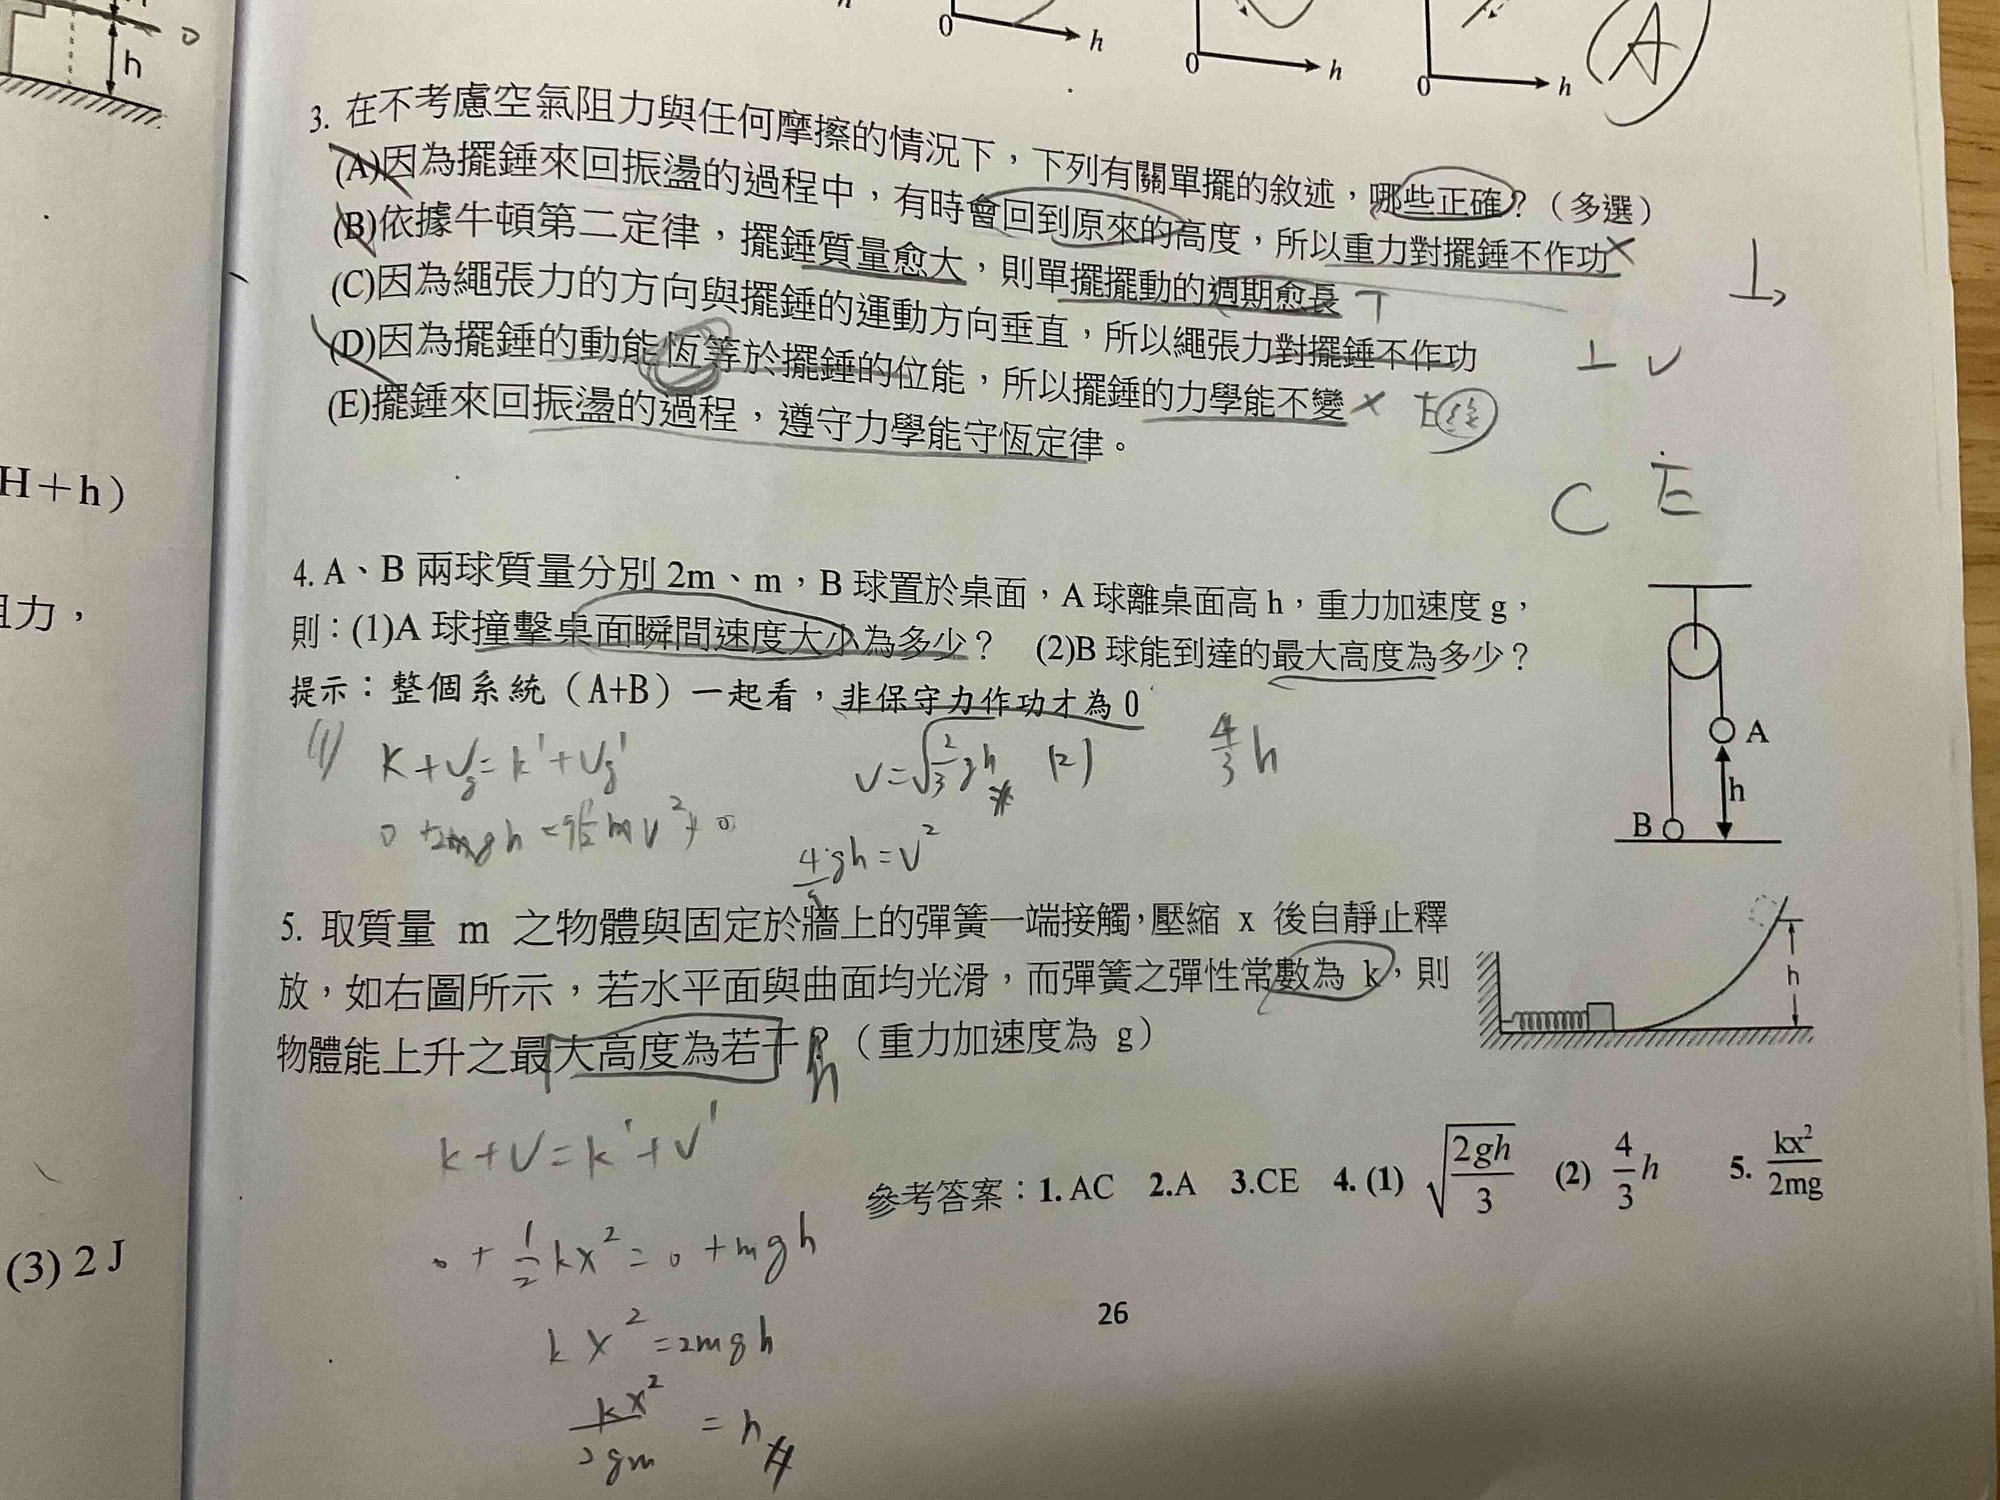 h
h
0
h
0
h
0
h
A
3. 在不考慮空氣阻力與任何摩擦的情況下，下列有關單擺的敘述，哪些正確？（多選）
(A)因為擺錘來回振盪的過程中，有時會回到原來的高度，所以重力對擺錘不作功
(B)依據牛頓第二定律，擺錘質量愈大，則單擺擺動的週期愈長
(C)因為繩張力的方向與擺錘的運動方向垂直，所以繩張力對擺錘不作功
(D)因為擺錘的動能恆等於擺錘的位能，所以擺錘的力學能不變
(E)擺錘來回振盪的過程，遵守力學能守恆定律。
C E
H＋h）
力，
(3) 2 J
4. A、B 兩球質量分別 2m、m，B 球置於桌面，A 球離桌面高 h，重力加速度 g，
則：(1)A 球撞擊桌面瞬間速度大小為多少？ (2)B 球能到達的最大高度為多少？
提示：整個系統（A+B）一起看，非保守力作功才為 0
A
h
B
(1) K+Ug=k'+Ug'
v=√2/3gh (2) 4/3 h
gh=v²
5. 取質量 m 之物體與固定於牆上的彈簧一端接觸，壓縮 x 後自靜止釋
放，如右圖所示，若水平面與曲面均光滑，而彈簧之彈性常數為 k，則
物體能上升之最大高度為若干？（重力加速度為 g）
h
h
k+U=k'+U'
0+1/2kx²=0+mgh
kx²=2mgh
kx²/2gm=h
參考答案：1. AC 2.A 3.CE 4. (1) √2gh/3 (2) 4/3 h 5. kx²/2mg
26